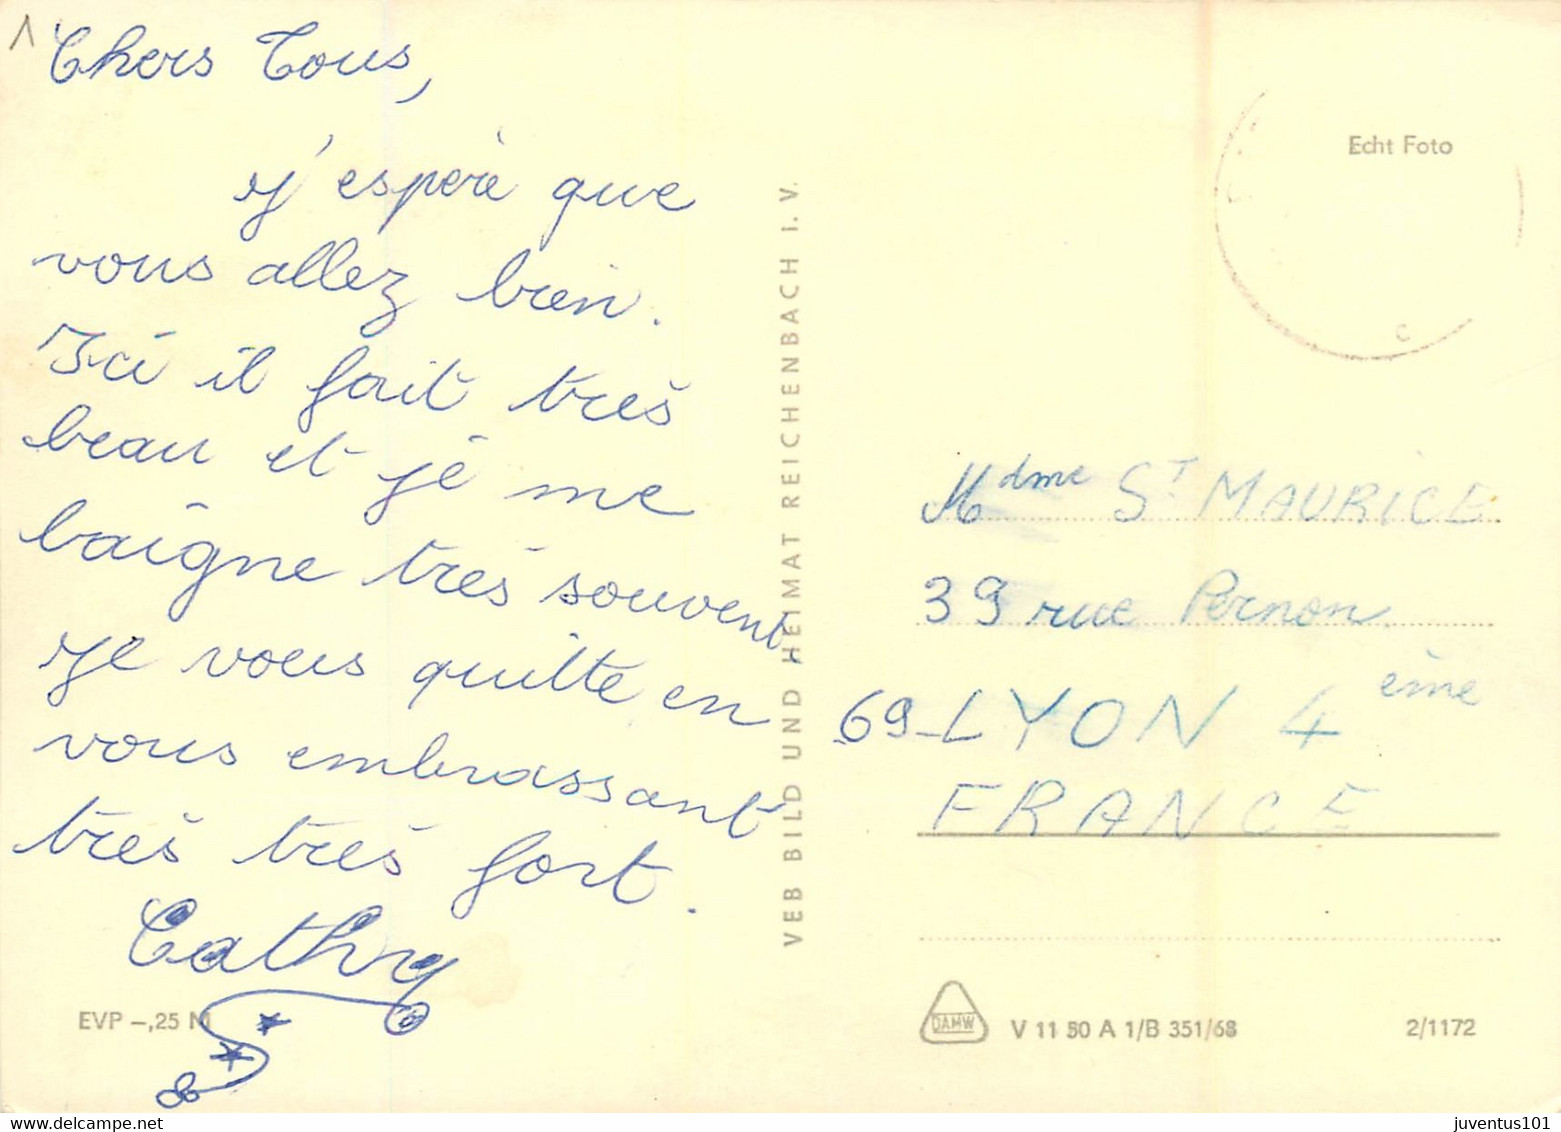 1
Chers Tous,
j'espère que
vous allez bien.
Ici il fait très
beau et je me
baigne très souvent.
Je vous quitte en
vous embrassant
très très fort.
Cathy
EVP –,25 M
VEB BILD UND HEIMAT REICHENBACH I. V.
Echt Foto
c
Mdme ST MAURICE
39 rue Pernon.
69_LYON 4ème
FRANCE
DAMW
V 11 50 A 1/B 351/68
2/1172
juventus101